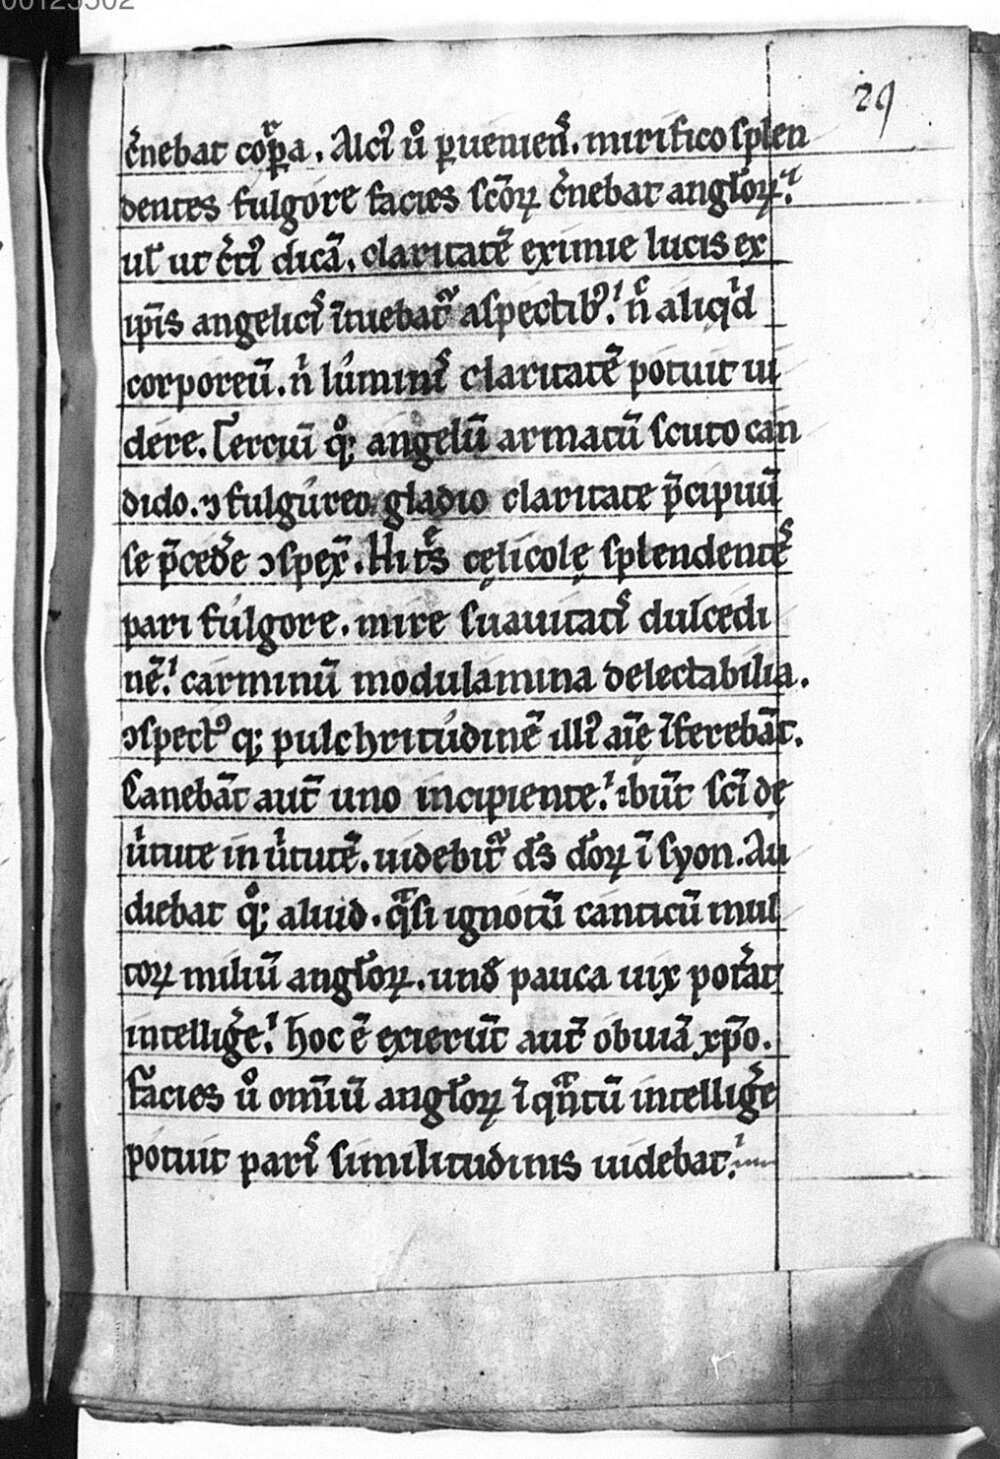 00125502
29
c̉nebat corpͣa. Alcͥ uͦ ꝑueniens̉. mirifico ſplen
dentes fulgore facies ſcōꝝ c̉nebat angl̉oꝝ.
ul̉ ut c̉tiꝰ dicā. claritatē eximie lucis ex
ip̄is angelicis̉ ītuebat̉ aſpectibꝰ. n̉ aliqͥd
corporeū. nͥ luminis̉ claritatē potuit ui
dere. Terciū qͦꝫ angelū armatū ſcuto can
dido. ⁊ fulgureo gladio claritate p̄cipuū
ſe p̄ced̉e ꝯſpex̄. Hi tͤs cęlicolę ſplendentes̉
pari fulgore. mire ſuauitatis̉ dulcedi
nē. carminū modulamina delectabilia.
ꝯſpectꝰ qꝫ pulchritudinē illiꝰ aīę īferebāt.
Canebāt aut̄ uno incipiente. ibūt ſcī de
u̍tute in u̍tutē. uidebit̉ d̄s d̉oꝝ ī ſyon. Au
diebat qͦꝫ aliud. qͣſi ignotū canticū mul
toꝝ miliū angl̉oꝝ. und̉ pauca uix pot̉at
intellig̉e. hoc ē exierūt aut̄ obuiā xp̄o.
Facies uͦ om̄iū angl̉oꝝ ī qͣntū intellig̉e
potuit paris̉ ſimilitudinis uidebat.